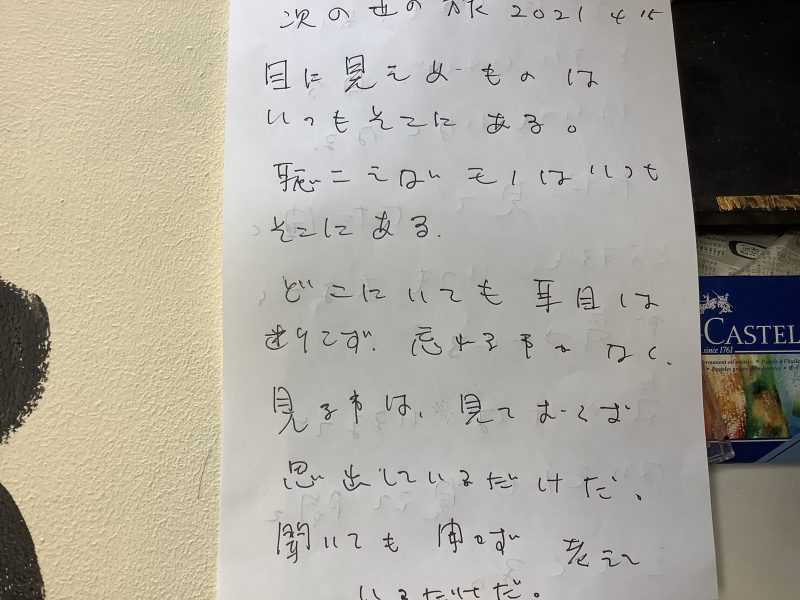 次の世の旅 2021 4 15
目に見えぬものは
いつもそこにある。
聴こえないモノはいつも
そこにある.
どこにいても 耳目は
忘れる事 なく、
見る事は、見て おらず
思い出しているだけだ、
聞いても 考えて
いるだけだ。
CASTEL
since 1761